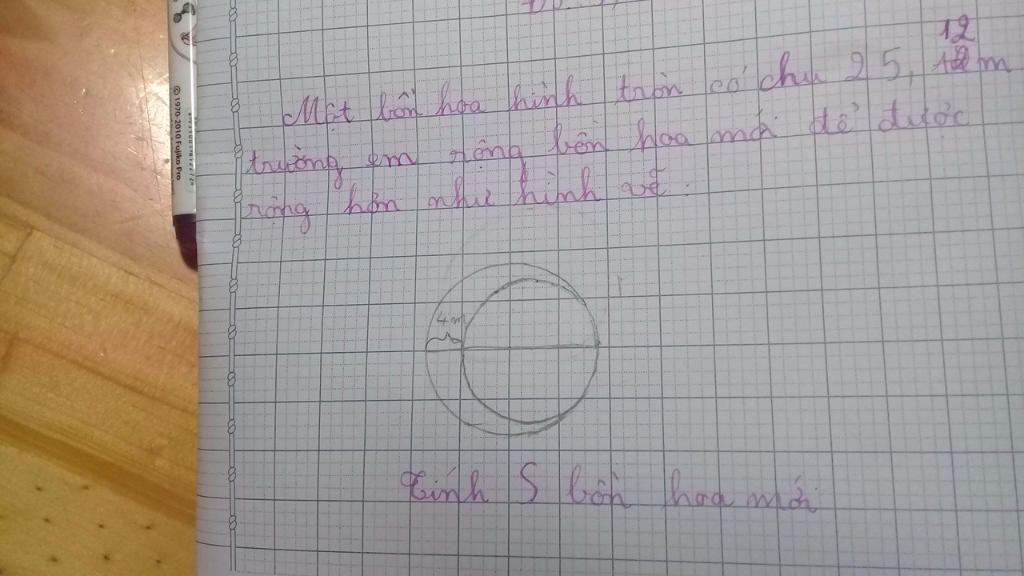 12
Một bồn hoa hình tròn có chu 25, m
trường em rộng bồn hoa mới để được
rộng hơn như hình vẽ.
4m
Tính S bồn hoa mới
© 1970-2010 Fujiko Pro